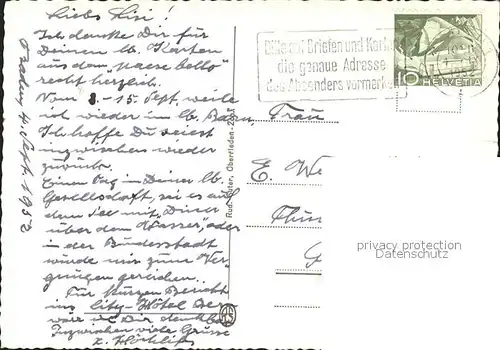 Liebs Lisi!
Ich danke Dir für
Deinen lb. Karten
aus dem "paese bello"
recht herzlich.
Vom 8.-15. Sept. weile
ich wieder im lb. Bern,
Ich hoffe Du seiest
inzwischen wieder
zurück.
Einen Tag in Deiner lb.
Gesellschaft, sei es auf
dem See mit Diner
über dem Wasser, oder
in der Bundesstadt
würde mir zum Ver-
gnügen gereichen.
Für kurzen Bericht
ins City-Hotel Bern
wäre ich Dir dankbar
Inzwischen viele Grüsse
4. Sept. 1952
Rud. Suter, Oberrieden-Z
RS
Bitte auf Briefen und Karten
die genaue Adresse
des Absenders vormerken
10 HELVETIA
1952
Frau
E. We
Thun
privacy protection
Datenschutz